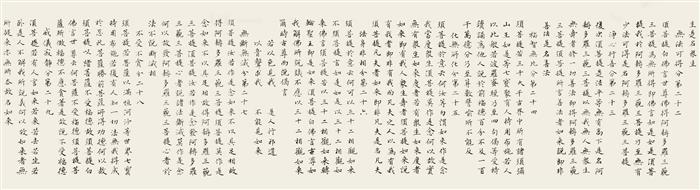 生是名眾生
無法可得分第二十二
須菩提白佛言世尊佛得阿耨多羅三
藐三菩提為無所得耶佛言如是如是須菩
提我於阿耨多羅三藐三菩提乃至無有
少法可得是名阿耨多羅三藐三菩提
淨心行善分第二十三
復次須菩提是法平等無有高下是名阿
耨多羅三藐三菩提以無我無人無眾生
無壽者修一切善法即得阿耨多羅三藐
三菩提須菩提所言善法者如來說即非
善法是名善法
福智無比分第二十四
須菩提若三千大千世界中所有諸須彌
山王如是等七寶聚有人持用布施若人
以此般若波羅蜜經乃至四句偈等受持
讀誦為他人說於前福德百分不及一百
千萬億分乃至算數譬喻所不能及
化無所化分第二十五
須菩提於意云何汝等勿謂如來作是念
我當度眾生須菩提莫作是念何以故實
無有眾生如來度者若有眾生如來度者
如來即有我人眾生壽者須菩提如來說
有我者即非有我而凡夫之人以為有我
須菩提凡夫者如來說即非凡夫是名凡夫
法身非相分第二十六
須菩提於意云何可以三十二相觀如來
不須菩提言如是如是以三十二相觀如來
佛言須菩提若以三十二相觀如來者轉
輪聖王即是如來須菩提白佛言世尊如
我解佛所說義不應以三十二相觀如來
爾時世尊而說偈言
若以色見我
以音聲求我
是人行邪道
不能見如來
無斷無滅分第二十七
須菩提汝若作是念如來不以具足相故
得阿耨多羅三藐三菩提須菩提莫作是
念如來不以具足相故得阿耨多羅三藐
三菩提須菩提汝若作是念發阿耨多羅
三藐三菩提心者說諸法斷滅莫作是念
何以故發阿耨多羅三藐三菩提心者於
法不說斷滅相
不受不貪分第二十八
須菩提若菩薩以滿恒河沙等世界七寶
持用布施若復有人知一切法無我得成
於忍此菩薩勝前菩薩所得功德何以故
須菩提以諸菩薩不受福德故須菩提白
佛言世尊云何菩薩不受福德須菩提菩
薩所作福德不應貪著是故說不受福德
威儀寂靜分第二十九
須菩提若有人言如來若來若去若坐若
臥是人不解我所說義何以故如來者無
所從來亦無所去故名如來